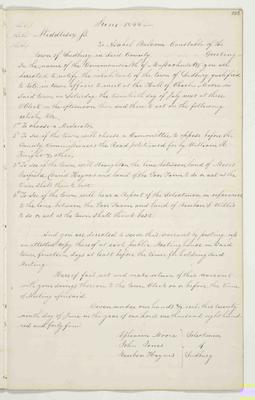 June 1844
Middlesex ss
To Constable of the
town of Sudbury in said County. Greeting
In the name of the Commonwealth of Massachusetts you are
directed to notify the inhabitants of the town of Sudbury qualified
to vote in town affairs to meet at the Hall of Charles Moore in
said town on Saturday the day of July next at three
O Clock in the afternoon then and there to act on the following
articles Viz.
1st To choose a Moderator
2d To see if the town will choose a Committee to appear before the
County Commissioners the Road petitioned for by William H.
& others
3d To see if the town will the line between land of Moses
David Haynes and land of the Poor Farm & do or act as the
Town shall think best
4th To see if the town will hear a Report of the Selectmen in reference
to the line between the Poor Farm and land of Willis
& do or act as the town shall think best.
And you are directed to serve this warrant by posting up
an attested copy thereof at each public Meeting house in said
Town fourteen days at least before the time for holding said
Meeting
Hereof fail not and make return of this warrant
with your doings thereon to the town Clerk on or before the time
of Meeting aforesaid
Given under our hands & seal this twenty
ninth day of June in the year of our Lord one thousand eight hund
red and forty four
Ephraim Moore } Selectmen
John Jones } of
Reuben Haynes } Sudbury